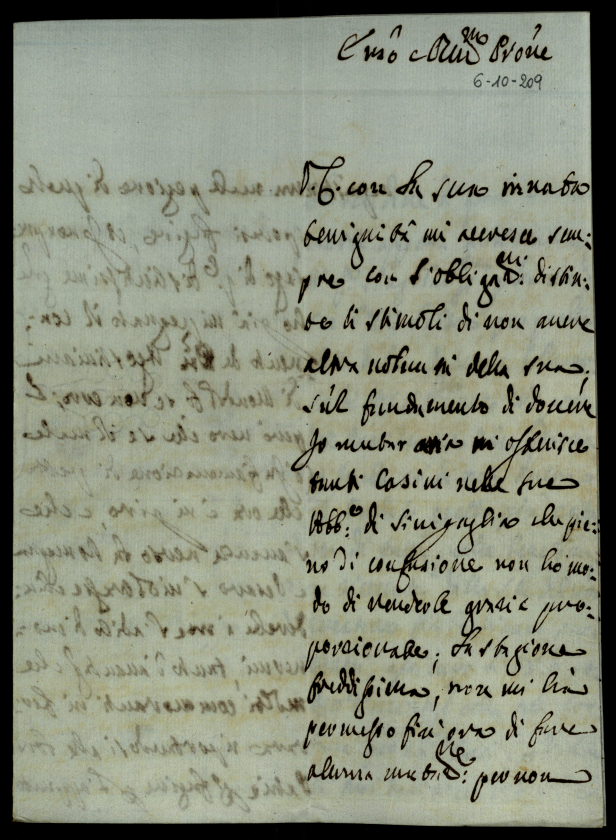 Em̃o e Rm̃o Prõne
6-10-209
V. E. con la sua innata
benignità mi accresce sem-
pre con l'obligaz.ni distin-
te li stimoli di non avere
altra volontà di della sua;
sul fundamento di dovere
Io mutar aria mi offerisce
tanti Casini nelle sue
Abb.e di Sinigaglia che pie-
no di confusione non hò mo-
do di renderle grazie pro-
porzionate; la stagione
freddissima, non mi hà
permesso fin ora di fare
alcuna mutaz.ne per non